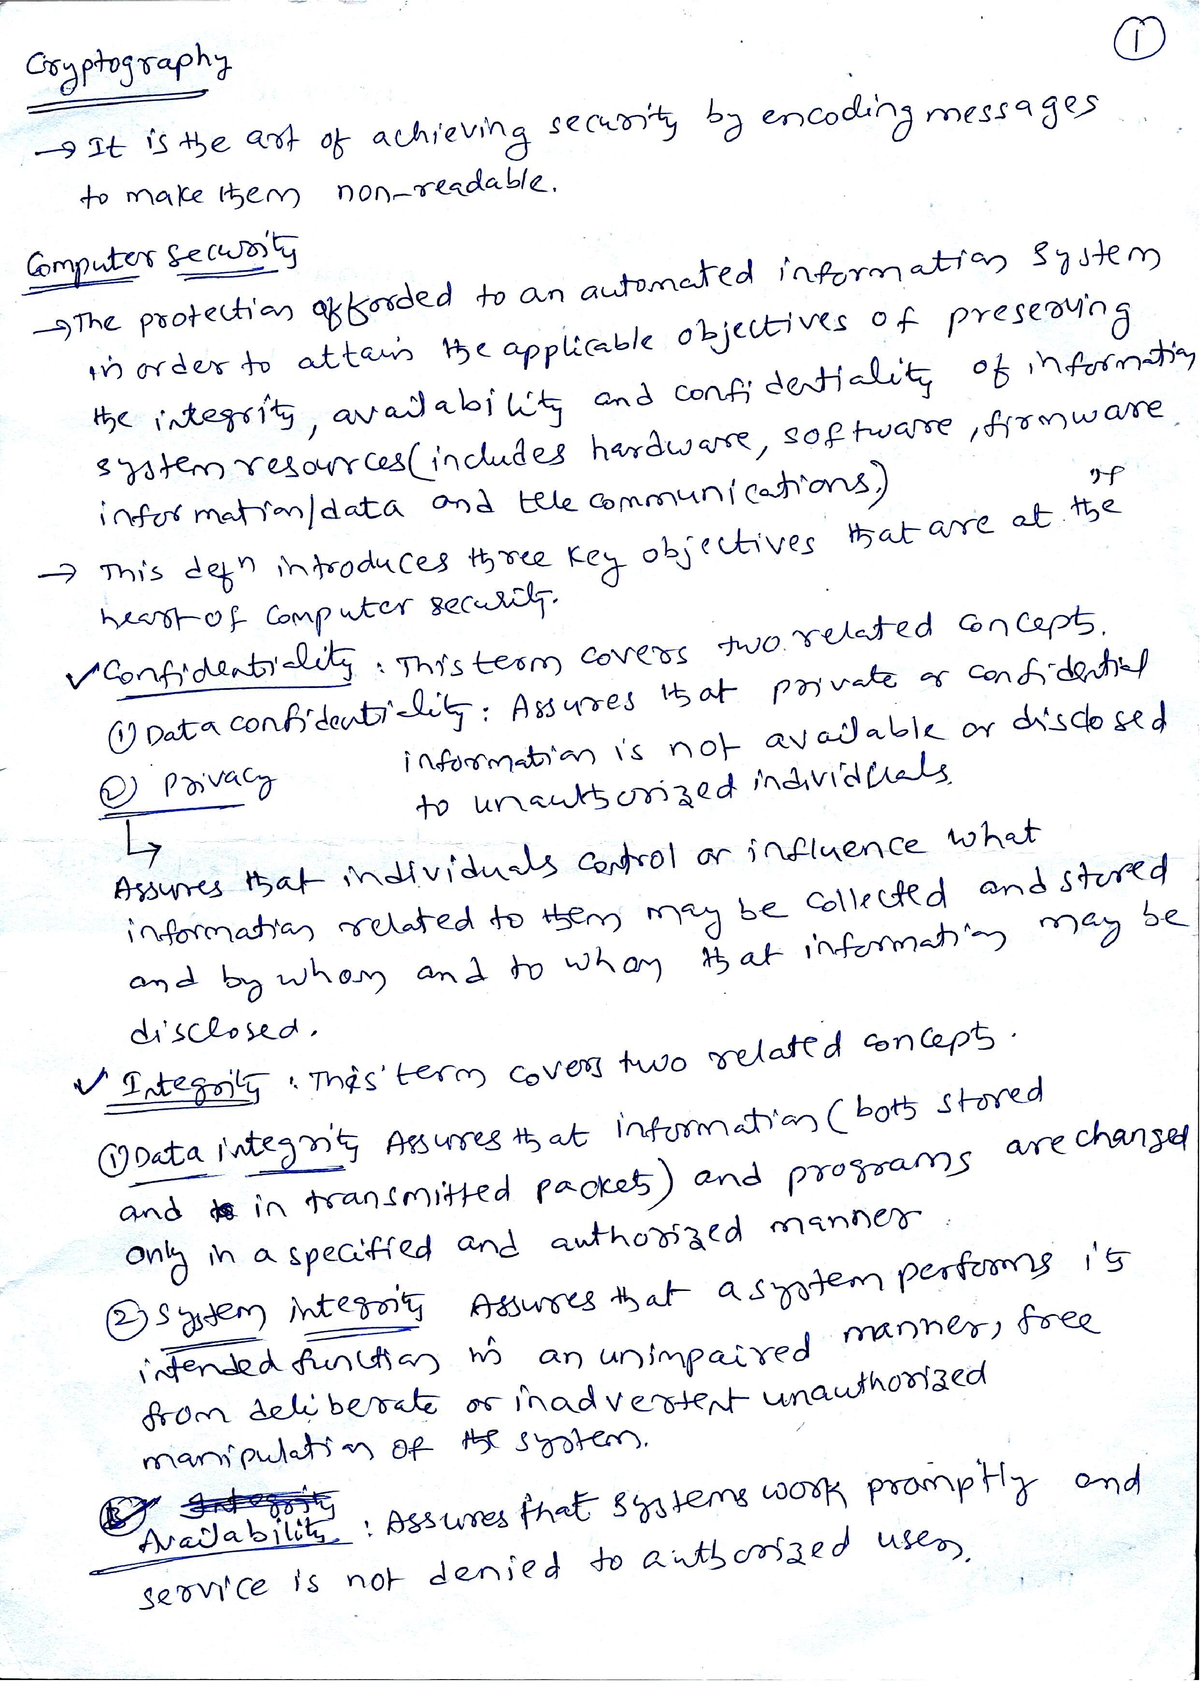 1
Cryptography
→ It is the art of achieving security by encoding messages
to make them non-readable.
Computer Security
→ The protection afforded to an automated information system
in order to attain the applicable objectives of preserving
the integrity, availability and confidentiality of information
system resources (includes hardware, software, firmware
information/data and telecommunications.)
→ This defn introduces three key objectives that are at the
heart of computer security.
✓ Confidentiality : This term covers two related concepts.
① Data confidentiality : Assures that private or confidential
information is not available or disclosed
to unauthorized individuals.
② Privacy
↳
Assures that individuals control or influence what
information related to them may be collected and stored
and by whom and to whom that information may be
disclosed.
✓ Integrity : This term covers two related concepts.
① Data integrity Assures that information (both stored
and in transmitted packets) and programs are changed
only in a specified and authorized manner.
② System integrity Assures that a system performs its
intended function in an unimpaired manner, free
from deliberate or inadvertent unauthorized
manipulation of the system.
Integrity
Availability : Assures that systems work promptly and
service is not denied to authorized users.